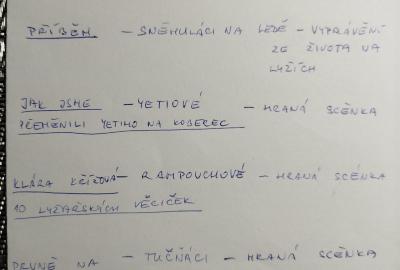 PŘÍBĚH - SNĚHULÁCI NA LEDĚ - VYPRÁVĚNÍ
ZE ŽIVOTA NA
LYŽÍCH
JAK JSME - YETIOVÉ - HRANÁ SCÉNKA
PŘEMĚNILI YETIHO NA KOBEREC
KLÁRA KŘÍŽOVÁ - RAMPOUCHOVÉ - HRANÁ SCÉNKA
10 LYŽAŘSKÝCH VĚCIČEK
PEVNĚ NA - TUČŇÁCI - HRANÁ SCÉNKA